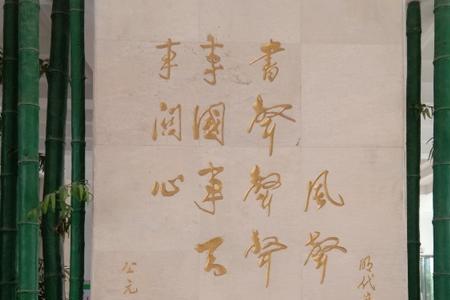 明代
風聲
書聲聲聲
事國事天
事關心
公元